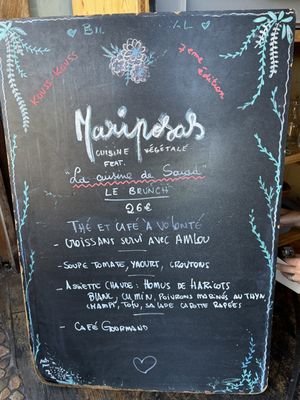 Kouss-Kouss
2ème édition
Mariposas
CUISINE VÉGÉTALE
FEAT.
"La cuisine de Saïad"
LE BRUNCH
26€
THÉ ET CAFÉ À VOLONTÉ
- CROISSANT SERVI AVEC AMLOU
- SOUPE TOMATE, YAOURT, CROUTONS
- ASSIETTE CHAUDE: HOMUS DE HARICOTS
BLANC, CUMIN, POIVRONS MARINÉS AU THYM
CHAMPI, TOFU, SALADE CAROTTE RAPÉES
- CAFÉ GOURMAND